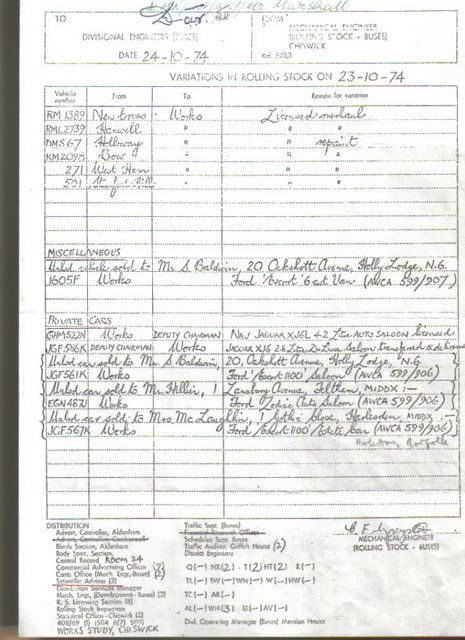 Marshall
TO
DIVISIONAL ENGINEERS (BUSES)
DATE 24-10-74
FROM
MECHANICAL ENGINEER
(ROLLING STOCK - BUSES)
CHISWICK
VARIATIONS IN ROLLING STOCK ON 23-10-74
Vehicle number From To Reason for variation
RM 1389 New Cross Works Licensed overhaul
RML2739 Hanwell " " "
DMS 67 Holloway " " repaint
RM2098 Bow " " "
271 West Ham " " "
501 " " "
MISCELLANEOUS
vehicle sold to Mr S. Baldwin, 20 Oakshott Avenue, Holly Lodge, N.6.
1605F Works Ford 'Escort' 6 cwt Van (AWCA 599/907)
PRIVATE CARS
GHM522N Works DEPUTY CHAIRMAN New JAGUAR XJ6L 4.2 Litre AUTO SALOON licensed
JGF586K DEPUTY CHAIRMAN Works JAGUAR XJ6 2.8 Litre De-Luxe Saloon transferred & delicensed
car sold to Mr S. Baldwin, 20, Oakshott Avenue, Holly Lodge, N.6
JGF561K Works Ford 'Escort 1100' Saloon (AWCA 599/906)
car sold to Mr. Hillier, 1 Avenue, Feltham, MIDDX :—
EGN487J Works Ford Zodiac Auto Saloon (AWCA 599/906)
car sold to Mrs McLaughlin, 1 Close, Harlesden, MIDDX. :—
JGF567K Works Ford 'Escort 1100' Estate Car (AWCA 599/906)
MECHANICAL ENGINEER
(ROLLING STOCK - BUSES)
DISTRIBUTION
Advert. Controller, Aldenham
Blinds Section, Aldenham
Body Spor. Section
Central Record ROOM 34
Commercial Advertising Officer (2)
Costs Office (Mech. Engr.-Buses) (2)
Scientific Adviser (2)
Distribution Services Manager
Mech. Engr. (Development - Buses) (2)
R. S. Licensing Section (3)
Rolling Stock Inspection
Statistical Office - Chiswick (2)
WORKS STUDY, CHISWICK
Traffic Supt. (Buses)
Financial Research Officer
Schedules Supt. Buses
Traffic Auditor, Griffith House (2)
District Engineers
Q (—) HX(2) . T(2)HT(2) R(—)
TL(—) SW(—)WN(—) W(—)HW(—)
TC (—) AR(—)
AL(—) WH(3) U(—)AV(—)
Dist. Operating Manager (Buses) Mansion House